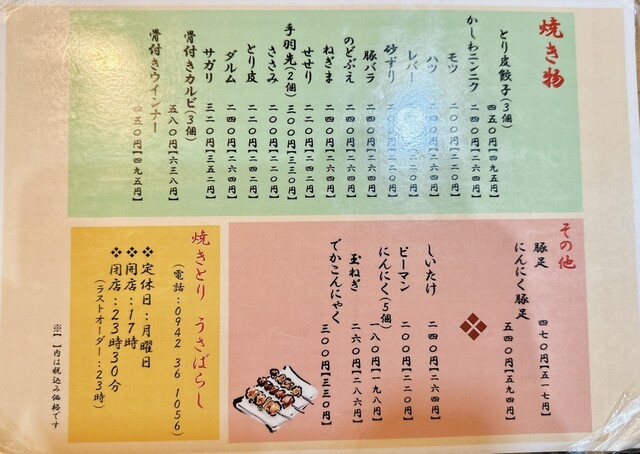 焼き物
とり皮餃子(3個) 四五〇円【四九五円】
かしわニンニク 二四〇円【二六四円】
モツ 二〇〇円【二二〇円】
ハツ 二四〇円【二六四円】
レバー 二四〇円【二六四円】
砂ずり 二四〇円【二六四円】
豚バラ 二四〇円【二六四円】
のどぶえ 二四〇円【二六四円】
ねぎま 二四〇円【二六四円】
せせり 二二〇円【二四二円】
手羽先(2個) 三〇〇円【三三〇円】
ささみ 二〇〇円【二二〇円】
とり皮 二二〇円【二四二円】
ダルム 二四〇円【二六四円】
サガリ 三二〇円【三五二円】
骨付きカルビ(3個) 五八〇円【六三八円】
骨付きウインナー 四五〇円【四九五円】
その他
豚足 四七〇円【五一七円】
にんにく豚足 五四〇円【五九四円】
しいたけ 二四〇円【二六四円】
ピーマン 二〇〇円【二二〇円】
にんにく(5個) 一八〇円【一九八円】
玉ねぎ 二六〇円【二八六円】
でかこんにゃく 三〇〇円【三三〇円】
焼きとり うさばらし
(電話:0942 36 1056)
❖定休日:月曜日
❖開店:17時
❖閉店:23時30分
(ラストオーダー:23時)
※【 】内は税込み価格です